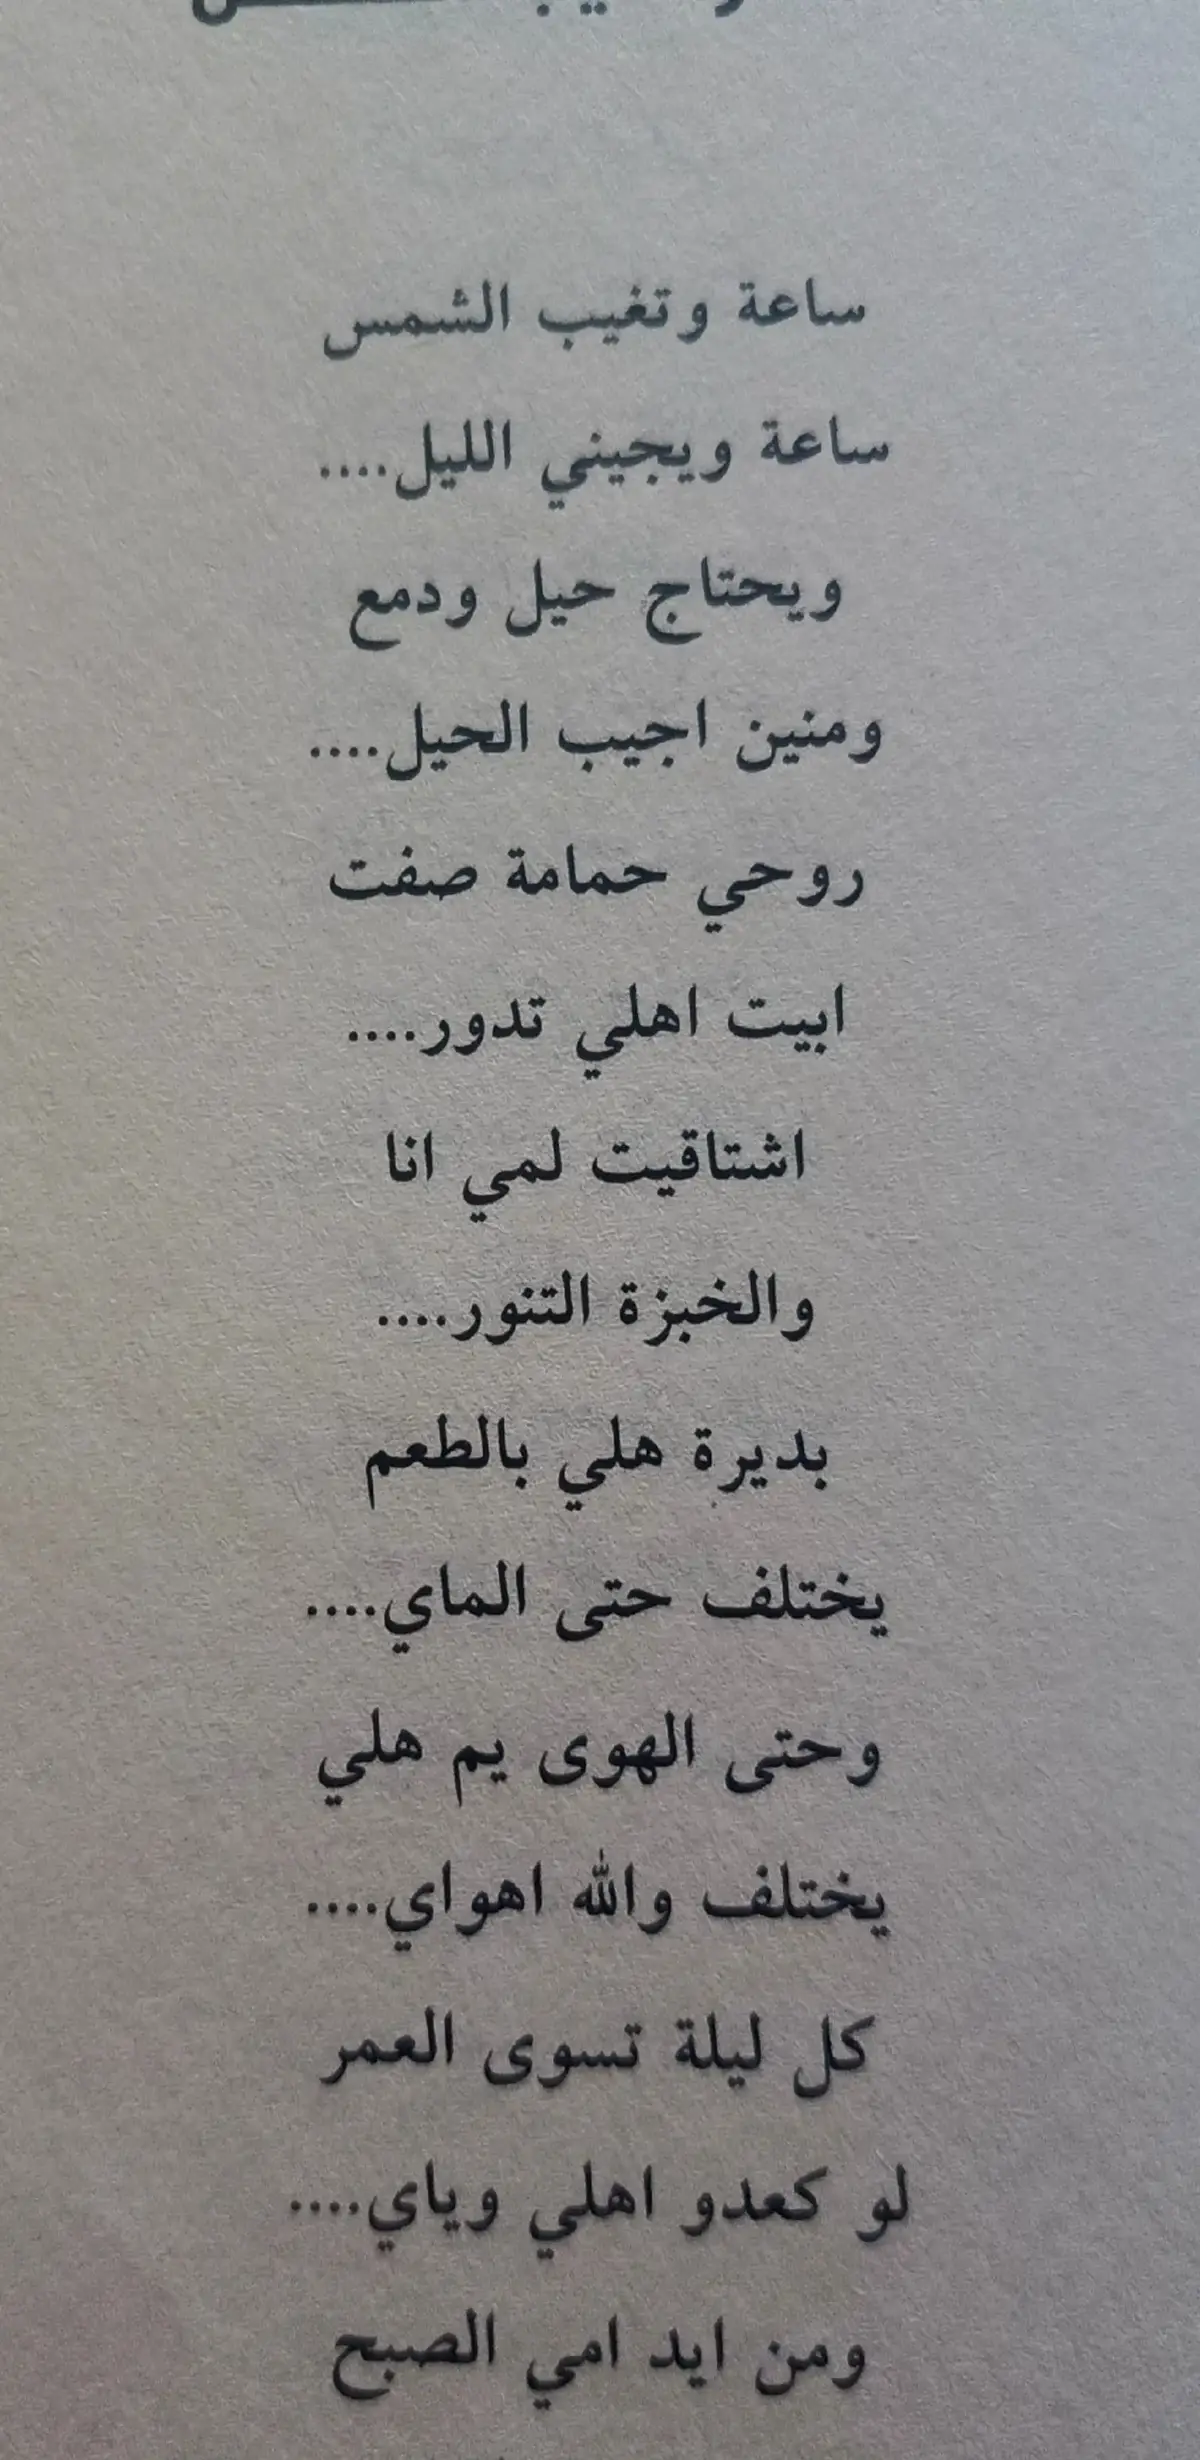 ساعة وتغيب الشمس
ساعة ويجيني الليل....
ويحتاج حيل ودمع
ومنين اجيب الحيل....
روحي حمامة صفت
ابيت اهلي تدور....
اشتاقيت لمي انا
والخبزة التنور....
بديرة هلي بالطعم
يختلف حتى الماي....
وحتى الهوى يم هلي
يختلف والله اهواي....
كل ليلة تسوى العمر
لو كعدو اهلي وياي....
ومن ايد امي الصبح